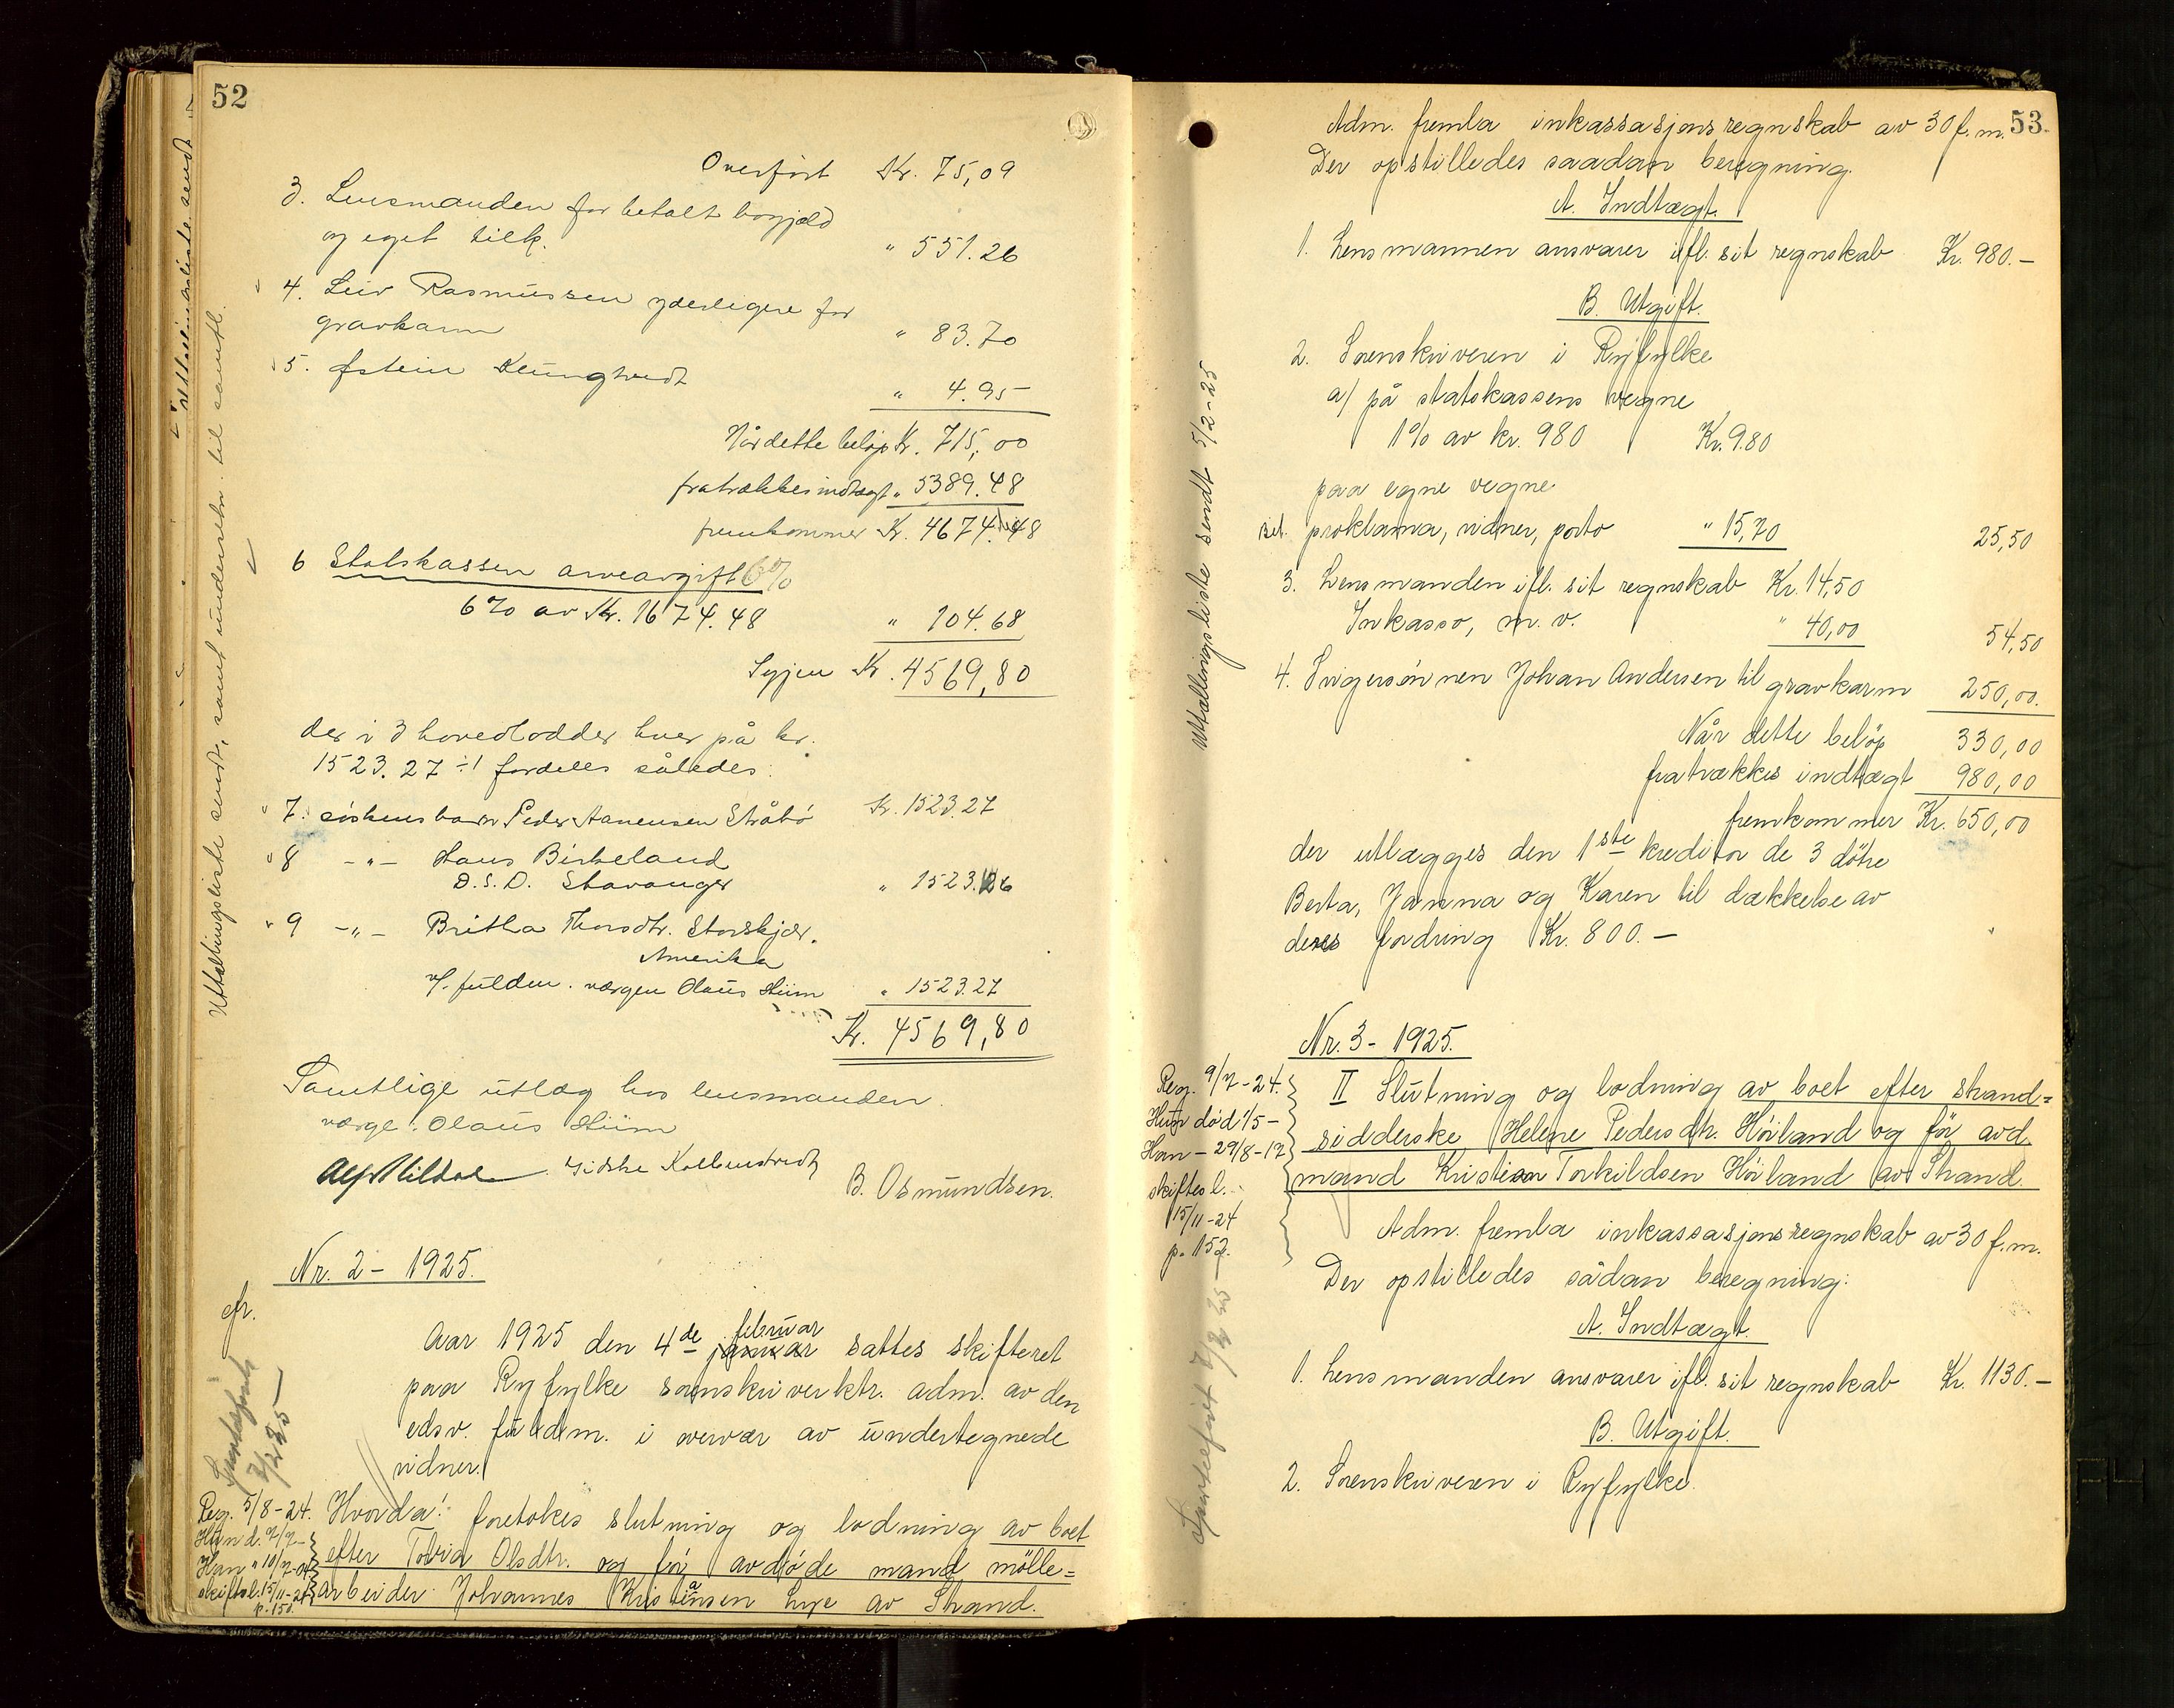 52
Overført Kr. 75,09
3. Lensmanden for betalt bogjæld
og eget tilk. " 551.26
4. Leiv Rasmussen yderligere for
gravkarm " 83.70
5. Østein Keungtvedt " 4.95
Når dette beløp Kr. 715,00
fratrækkes indtægt " 5389.48
fremkommer Kr. 4674.48
6 Statskassen arveavgift 6%
6% av Kr. 1674.48 " 104.68
Igjen Kr. 4569,80
der i 3 hovedlodder hver på kr.
1523.27 ÷1 fordeles således:
7. søskensbarn Peder Aanensen Stråbø Kr. 1523.27
8 -"- Hans Birkeland
D.S.D. Stavanger " 1523.26
9 -"- Britha Thorsdtr. Storskjær.
Amerika
v/ fuldm. værgen Olaus Hiim " 1523.27
Kr. 4569,80
Samtlige utlæg hos lensmanden.
værge: Olaus Hiim
B. Osmundsen.
Utbetalingsliste sendt, samt underretn. til samtl.
Nr. 2 - 1925.
Aar 1925 den 4de januar februar sattes skifteret
paa Ryfylke sorenskriverktr. adm. av den
edsv. fuldm. i overvær av undertegnede
vidner.
Hvorda: foretokes slutning og lodning av boet
efter Tovia Olsdtr. og før avdøde mand mölle=
arbeider Johannes Kristiansen Lye av Strand.
Reg. 5/8-24.
Hun d. 7/7-
Han " 10/7-04
skiftesl. 15/11-24
p. 150.
53.
Adm. fremla inkassasjonsregnskab av 30 f.m.
Der opstilledes saadan beregning.
A. Indtægt.
1. Lensmannen ansvarer ifl. sit regnskab Kr. 980.-
B. Utgift.
2. Sorenskriveren i Ryfylke
a/ på statskassens vegne
1% av kr. 980 Kr. 9.80
paa egne vegne
bet. proklama, vidner, porto " 15,70 25,50
3. Lensmanden ifl. sit regnskab Kr. 14,50
Inkasso, m.v. " 40,00 54,50
4. Svigersønnen Johan Andersen til gravkarm 250,00.
Når dette beløp 330,00
fratrækkes indtægt 980,00
fremkommer Kr. 650,00
der utlægges den 1ste kreditor de 3 døtre
Berta, Janna og Karen til dækkelse av
deres fordring Kr. 800.-
Utbetalingsliste sendt 5/2-25
Nr. 3 - 1925.
II Slutning og lodning av boet efter strand=
sidderske Helene Pedersdtr. Höiland og før avd.
mand Kristian Torkildsen Höiland av Strand.
Reg. 9/7-24.
Hun död 1/5-
Han - 29/8-17
skiftesl.
15/11-24
p. 152.
Adm. fremla inkassasjonsregnskab av 30 f.m.
Der opstilledes sådan beregning:
A. Indtægt.
1. Lensmanden ansvarer ifl. sit regnskab Kr. 1130.-
B. Utgift.
2. Sorenskriveren i Ryfylke.